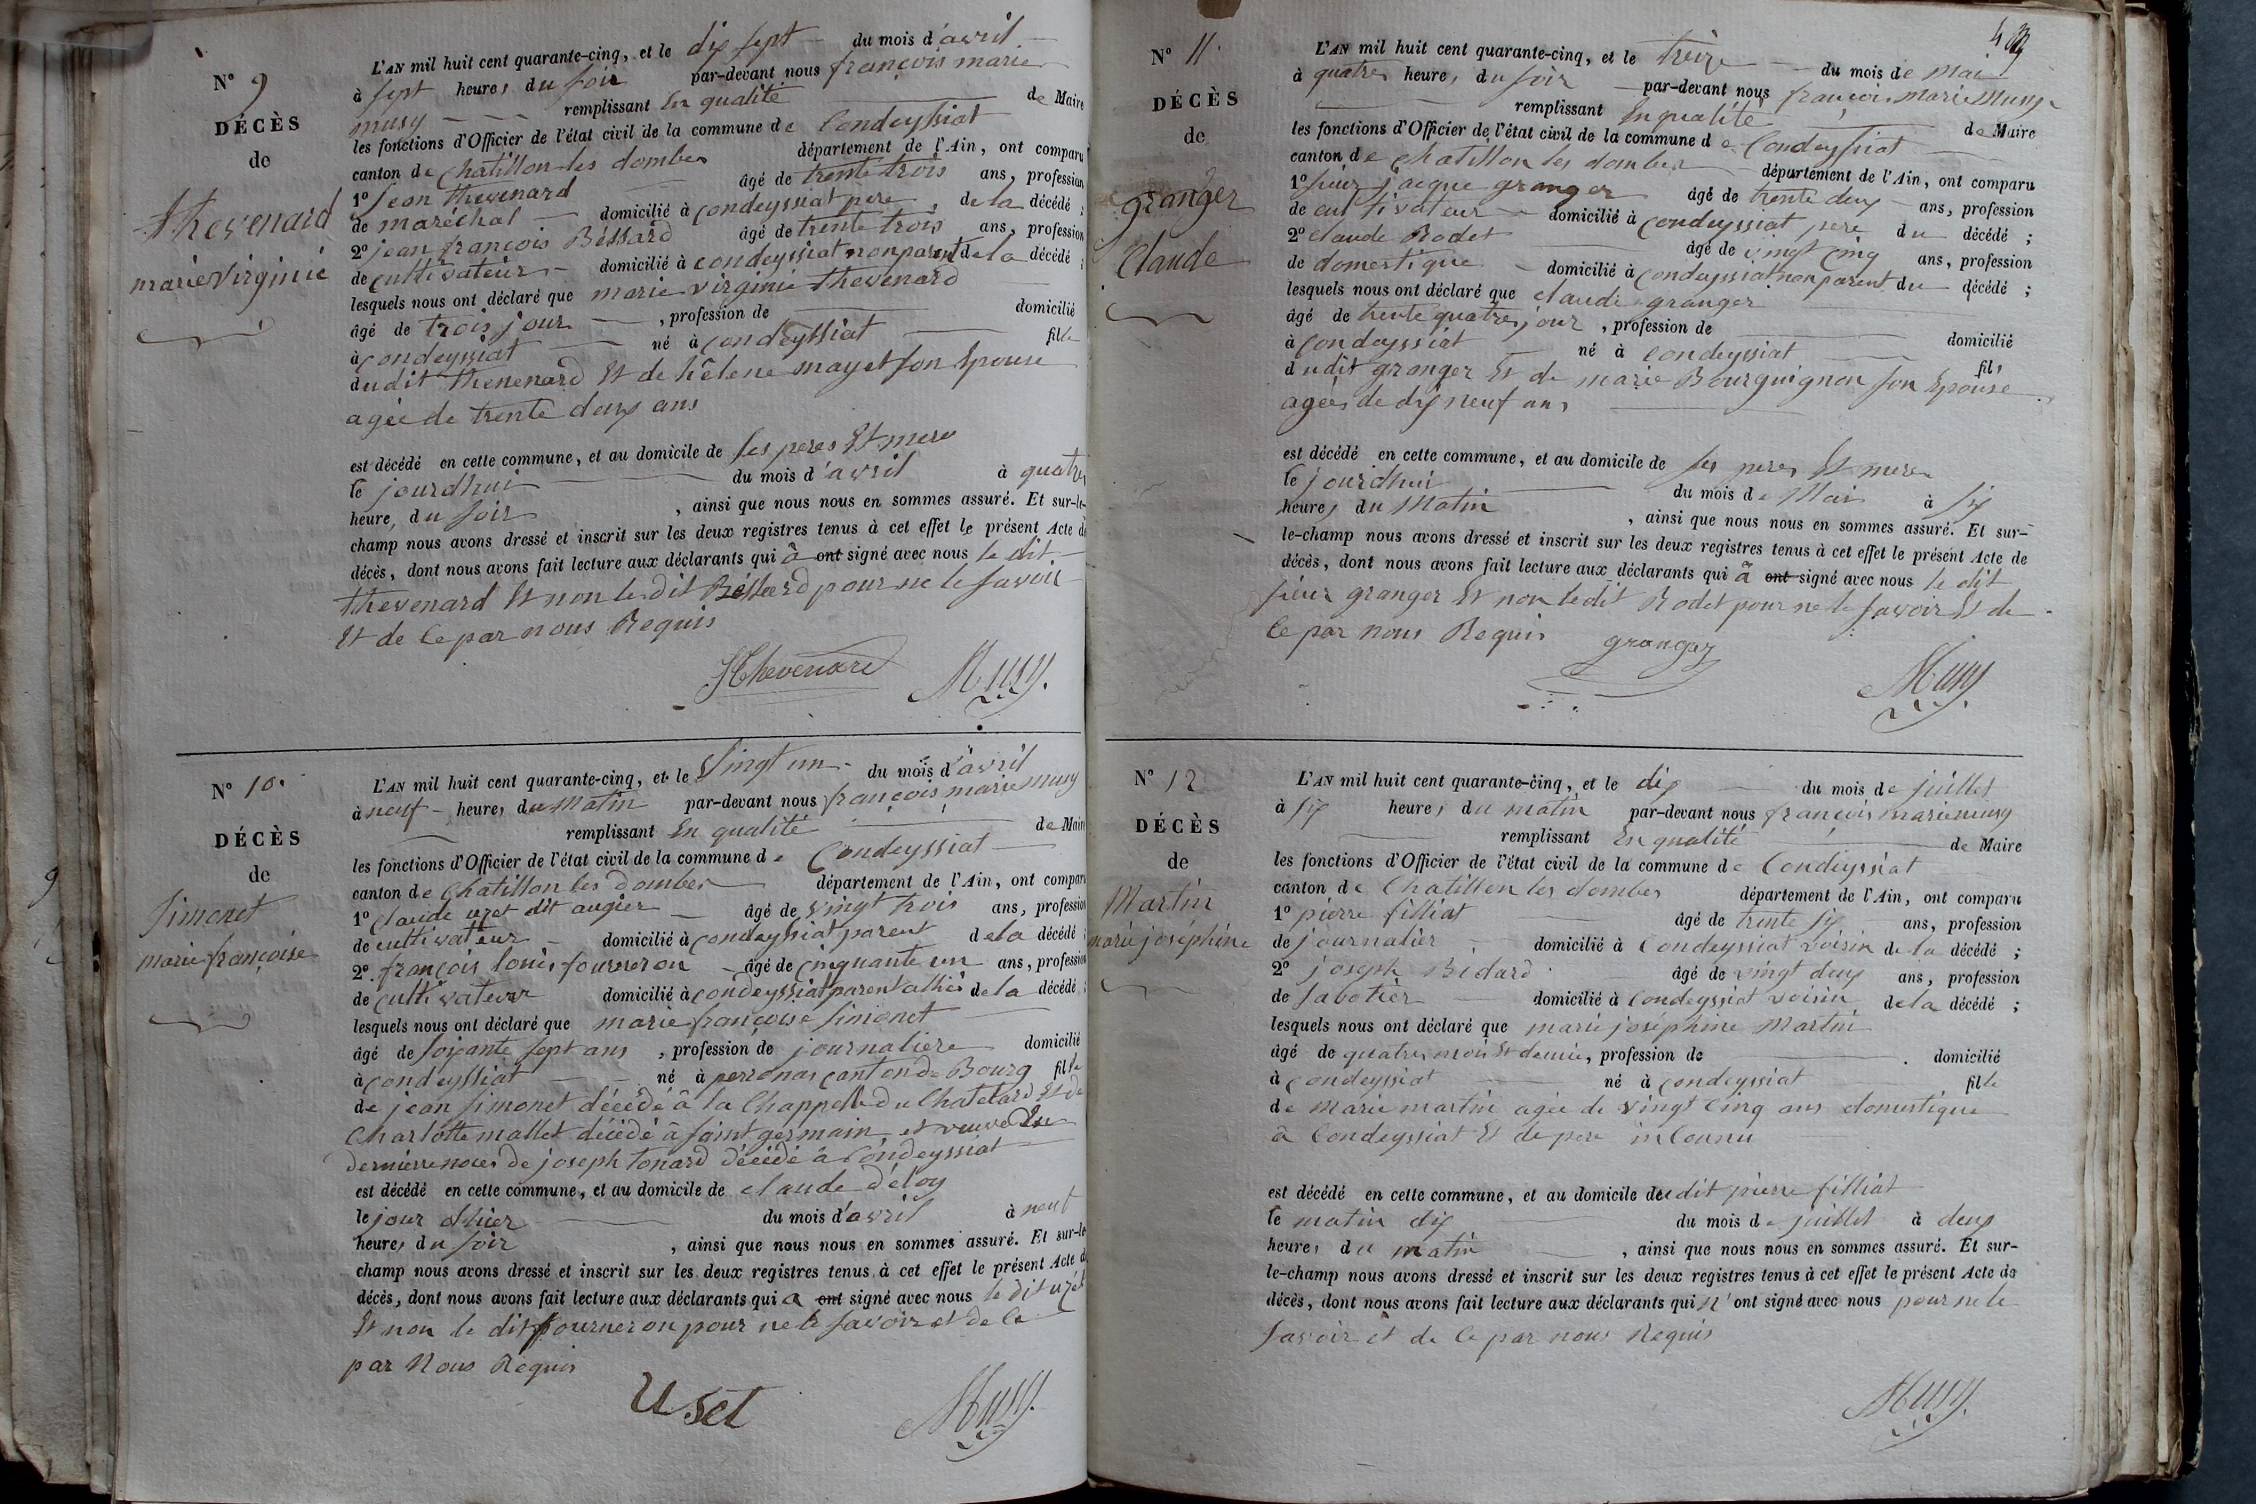 N° 9
DÉCÈS
de
thevenard
marie virginie
L'AN mil huit cent quarante-cinq, et le dix sept du mois d'avril
à sept heures du soir par-devant nous françois marie
musy remplissant En qualité de Maire
les fonctions d'Officier de l'état civil de la commune de Condeyssiat
canton de Chatillon les dombes département de l'Ain, ont comparu
1° Jean thevenard âgé de trente trois ans, profession
de maréchal domicilié à condeyssiat pere de la décédé ;
2° jean françois Béssard âgé de trente trois ans, profession
de cultivateur domicilié à condeyssiat non parent de la décédé ;
lesquels nous ont déclaré que marie virginie thevenard
âgé de trois jour , profession de domicilié
à condeyssiat né à condeyssiat fille
dudit thenenard Et de hêlene mayet son Epouse
agée de trente deux ans
est décédé en cette commune, et au domicile de ses peres Et mere
le jourdhui du mois d'avril à quatre
heures du soir , ainsi que nous nous en sommes assuré. Et sur-le-
champ nous avons dressé et inscrit sur les deux registres tenus à cet effet le présent Acte de
décès, dont nous avons fait lecture aux déclarants qui â ont signé avec nous le dit
thevenard Et non le dit Béssard pour ne le savoir
Et de ce par nous Requis
JThevenard Musy.
N° 10.
DÉCÈS
de
Simonet
marie françoise
L'AN mil huit cent quarante-cinq, et le Vingt un du mois d'avril
à neuf heures du Matin par-devant nous françois marie musy
remplissant En qualité de Maire
les fonctions d'Officier de l'état civil de la commune de Condeyssiat
canton de Chatillon les dombes département de l'Ain, ont comparu
1° claude uzet dit augier âgé de vingt trois ans, profession
de cultivateur domicilié à condeyssiat parent de la décédé ;
2° françois louis fourneron âgé de cinquante un ans, profession
de cultivateur domicilié à condeyssiat parent allié de la décédé ;
lesquels nous ont déclaré que marie françoise Simonet
âgé de soixante sept ans , profession de journaliere domicilié
à condeyssiat né à perronas canton de Bourg fille
de jean simonet décédé â la Chappelle du Chatelard Et de
Charlotte mallet décédé â saint germain et veuve En
dernierre noces de joseph tonard décédé â Condeyssiat
est décédé en cette commune, et au domicile de claude déloy
le jour dhier du mois d'avril à neuf
heures du soir , ainsi que nous nous en sommes assuré. Et sur-le-
champ nous avons dressé et inscrit sur les deux registres tenus à cet effet le présent Acte de
décès, dont nous avons fait lecture aux déclarants qui a ont signé avec nous le dit uzet
Et non le dit fourneron pour ne le savoir et de ce
par Nous Requis
Uset Musy.
N° 11.
DÉCÈS
de
granger
Claude
L'AN mil huit cent quarante-cinq, et le treize du mois de Mai
à quatres heures du soir par-devant nous françois Marie Musy
remplissant En qualité de Maire
les fonctions d'Officier de l'état civil de la commune de Condeyssiat
canton de Chatillon les dombes département de l'Ain, ont comparu
1° pier jacque granger âgé de trente deux ans, profession
de cultivateur domicilié à condeyssiat pere du décédé ;
2° claude Rodet âgé de vingt cinq ans, profession
de domestique domicilié à condeyssiat non parent du décédé ;
lesquels nous ont déclaré que claude granger
âgé de trente quatres jour , profession de domicilié
à condeyssiat né à Condeyssiat fils
dudit granger Et de marie Bourguignon son Epouse
agées de dix neuf ans
est décédé en cette commune, et au domicile de ses peres Et mere
le jourdhui du mois de Mai à six
heures du Matin , ainsi que nous nous en sommes assuré. Et sur-
le-champ nous avons dressé et inscrit sur les deux registres tenus à cet effet le présent Acte de
décès, dont nous avons fait lecture aux déclarants qui â ont signé avec nous le dit
pier granger Et non le dit Rodet pour ne le savoir Et de
ce par nous Requis granger
Musy
N° 12
DÉCÈS
de
Martin
marie joséphine
L'AN mil huit cent quarante-cinq, et le dix du mois de juillet
à six heures du matin par-devant nous françois marie musy
remplissant En qualité de Maire
les fonctions d'Officier de l'état civil de la commune de Condeyssiat
canton de Chatillon les dombes département de l'Ain, ont comparu
1° pierre filliat âgé de trente six ans, profession
de journalier domicilié à Condeyssiat voisin de la décédé ;
2° joseph Bidard âgé de vingt deux ans, profession
de Sabotier domicilié à Condeyssiat voisin de la décédé ;
lesquels nous ont déclaré que marie joséphine Martin
âgé de quatres mois Et demie, profession de domicilié
à condeyssiat né à condeyssiat fille
de Marie martin agée de vingt cinq ans domestique
â Condeyssiat Et de pere inConnu
est décédé en cette commune, et au domicile dudit pierre filliat
le matin dix du mois de juillet à deux
heures du matin , ainsi que nous nous en sommes assuré. Et sur-
le-champ nous avons dressé et inscrit sur les deux registres tenus à cet effet le présent Acte de
décès, dont nous avons fait lecture aux déclarants qui n'ont signé avec nous pour ne le
savoir et de ce par nous Requis
Musy.